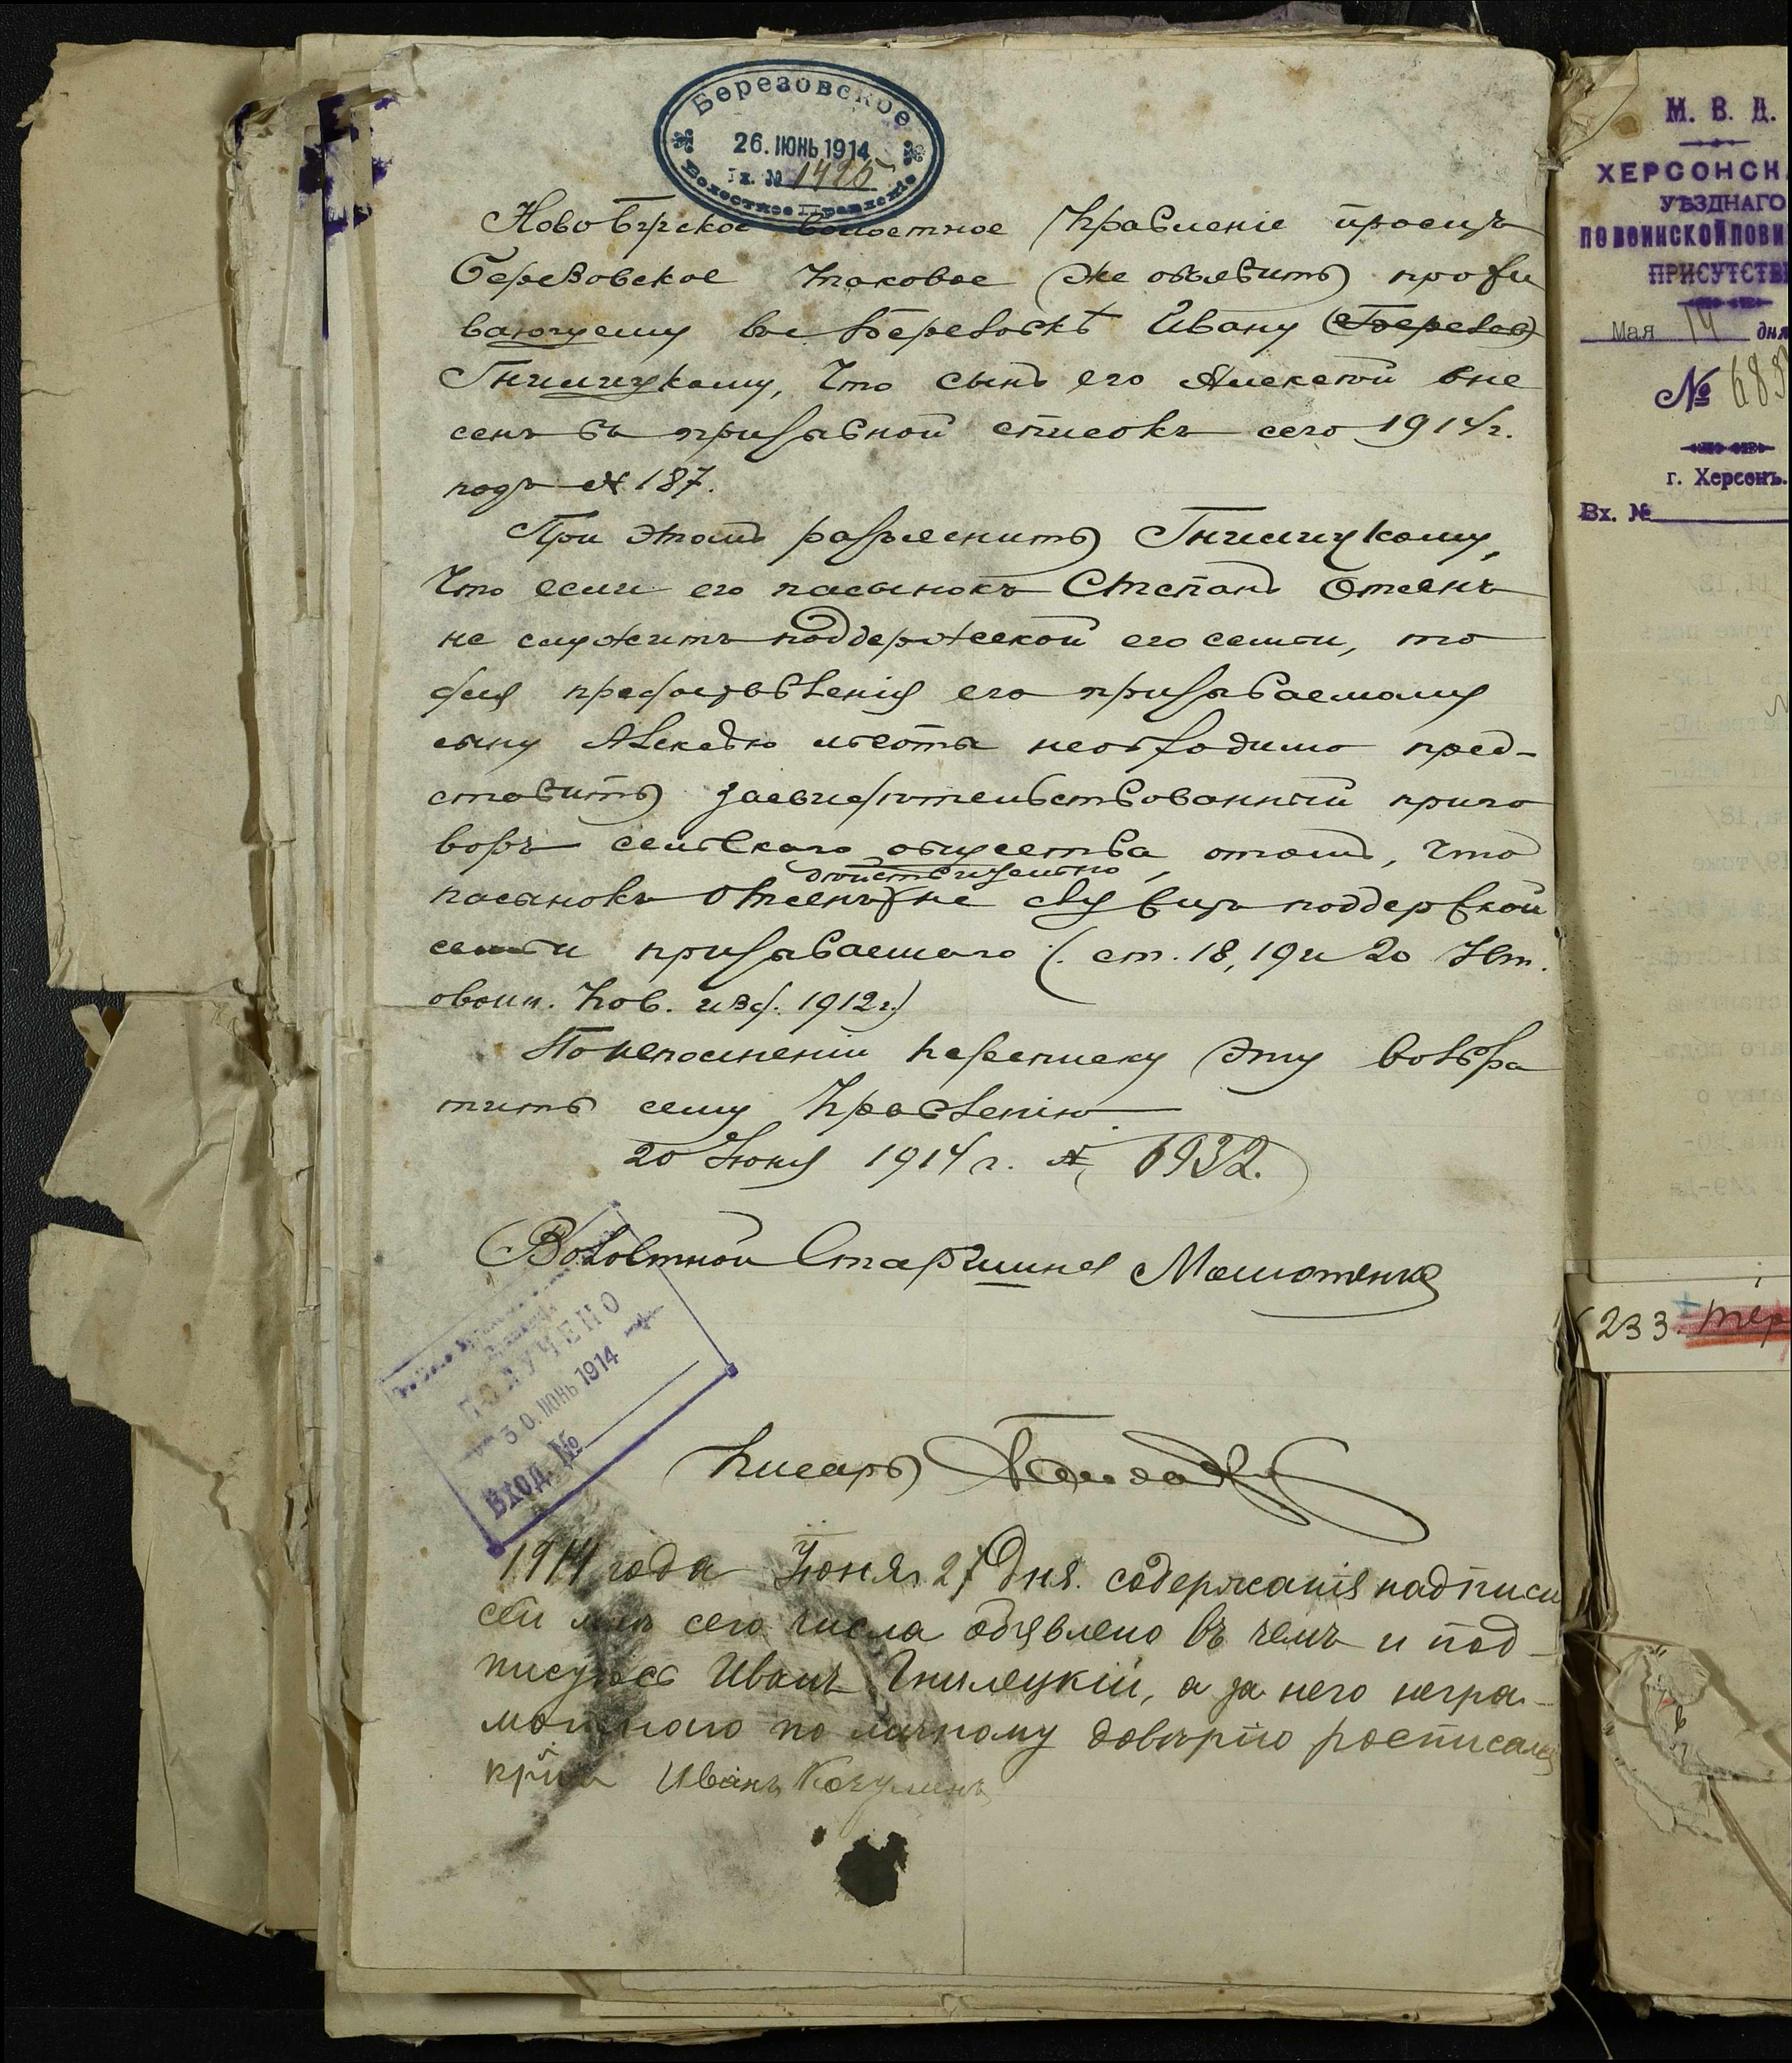 Березовское
26. ІЮНЬ 1914
Вх. № 1426
Волостное Правленіе
Новобугское волостное Правленіе проситъ
Березовское таковое же объявить прожи
вающему въ Березовкѣ Ивану
Гнилицкому, что сынъ его Алексѣй вне
сенъ въ призывной списокъ сего 1914 г.
подъ № 187.
При этомъ разъяснить Гнилицкому,
что если его пасынокъ Степанъ
не служитъ поддержкой его семьи, то
для предоставленія его призываемому
сыну Алексѣю льготы необходимо пред-
ставить засвидѣтельствованный приго
воръ сельскаго общества, о томъ, что
дѣйствительно
пасынокъ не служитъ поддержкой
семьи призываемаго (ст. 18, 19 и 20 Уст.
о воин. пов. изд. 1912 г.)
По исполненіи переписку эту возвра
тить сему Правленію.
20 Іюня 1914 г. № 6932.
Волостной Старшина
Писарь
ПОЛУЧЕНО
30. ІЮНЬ 1914
ВХОД. №
1914 года Іюня 27 дня. содержанія надписи
сей мнѣ сего числа объявлено въ чемъ и под-
писуюсь Иванъ Гнилецкій, а за него негра-
мотнаго по личному довѣрію росписался
Иванъ
М. В. Д.
ХЕРСОНСК
УѢЗДНАГО
ПО ВОИНСКОЙ ПОВИ
ПРИСУТСТВІ
Мая 14 дня
№ 683
г. Херсонъ.
Вх. №
233